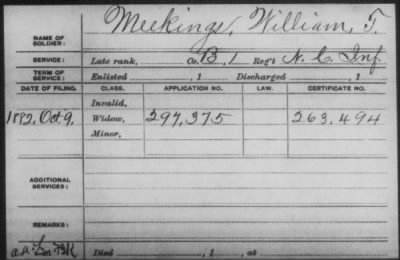 NAME OF SOLDIER: Meekings, William, T.
SERVICE: Late rank, Co. B, 1 Reg't N. C. Inf
TERM OF SERVICE: Enlisted , 1 Discharged , 1
DATE OF FILING. CLASS. APPLICATION NO. LAW. CERTIFICATE NO.
Invalid,
1882, Oct. 9, Widow, 297,375 263,494
Minor,
ADDITIONAL SERVICES:
REMARKS:
Died , 1 , at